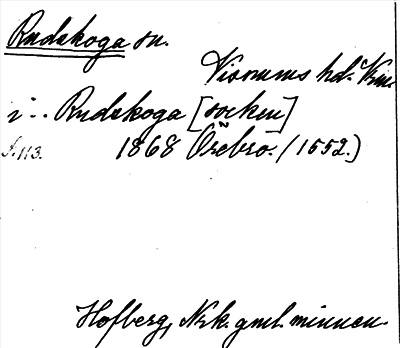 Rudskoga sn.
Visnums hd. Vrml.
i .. Rudskoga [socken]
s. 113. 1868 Örebro. (1552.)
Hofberg, Nrk. gml. minnen.